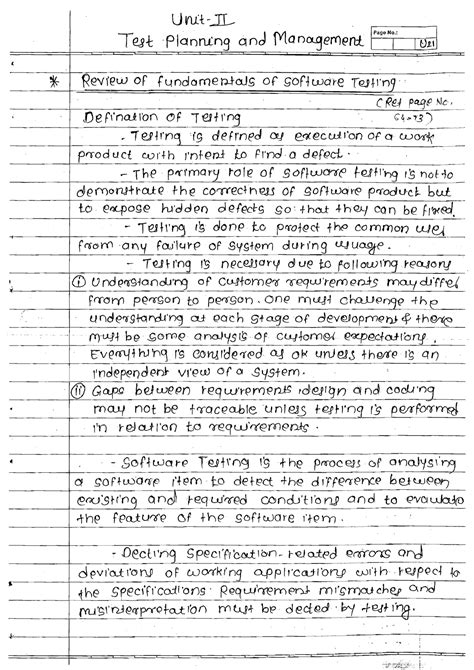 Unit-II
Test Planning and Management
Page No.:
U21
* Review of fundamentals of Software Testing
(Ref page No.
Defination of Testing
- Testing is defined as execution of a work
product with intent to find a defect.
- The primary role of software testing is not to
demonstrate the correctness of software product but
to expose hidden defects so that they can be fixed.
- Testing is done to protect the common user
from any failure of system during usuage.
- Testing is necessary due to following reasons
(i) Understanding of customer requirements may differ
from person to person. One must challenge the
understanding at each stage of development & there
must be some analysis of customer expectations.
Everything is considered as ok unless there is an
independent view of a system.
(ii) Gaps between requirements, design and coding
may not be traceable unless testing is performed
in relation to requirements.
- Software Testing is the process of analysing
a software item to detect the difference between
existing and required conditions and to evaluate
the feature of the software item.
- Decting Specification-related errors and
deviations of working applications with respect to
the specifications. Requirement mismatches and
misinterpretation must be dected by testing.